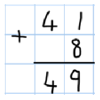 41
+ 8
49